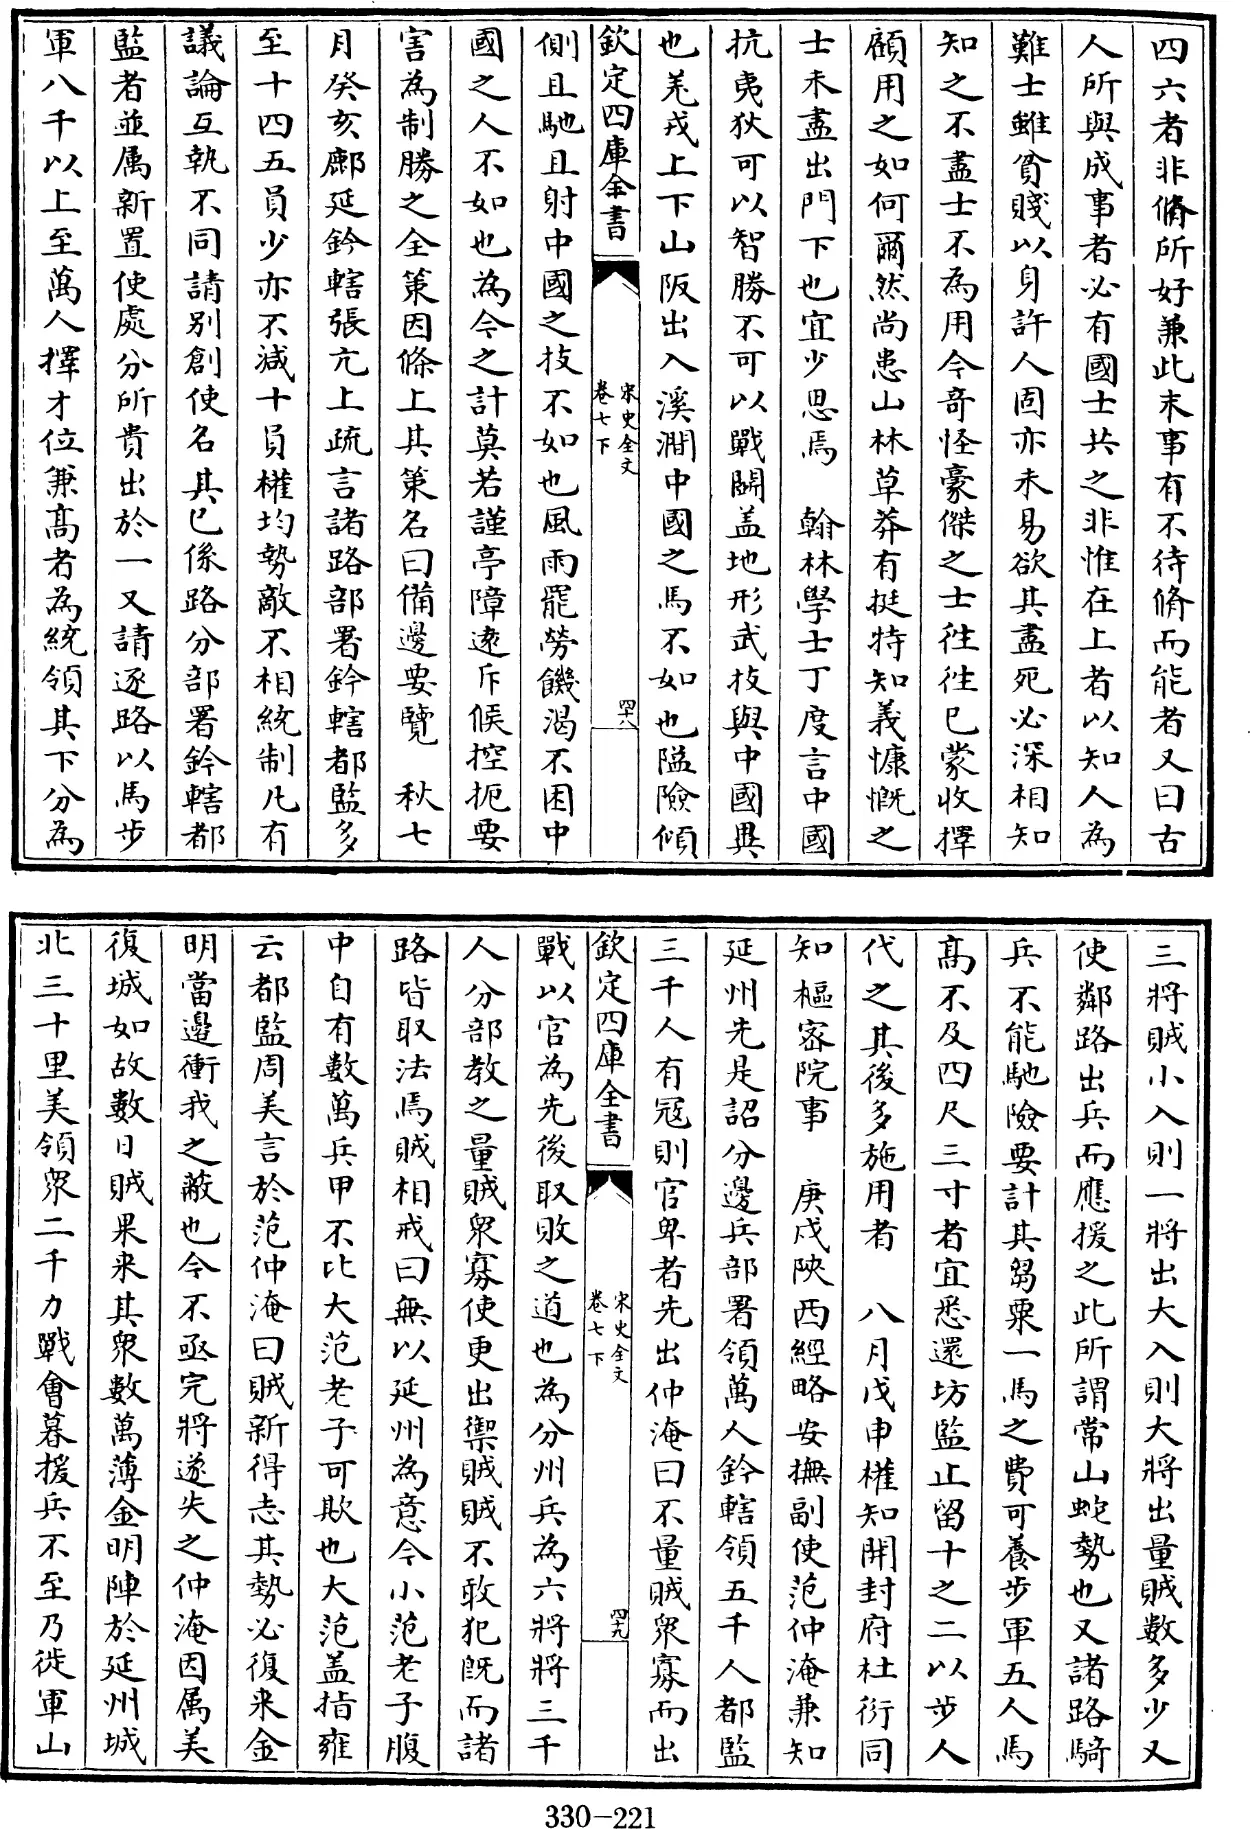 四六者非脩所好兼此末事有不待脩而能者又曰古
人所與成事者必有國士共之非惟在上者以知人為
難士雖貧賤以身許人固亦未易欲其盡死必深相知
知之不盡士不為用今奇怪豪傑之士徃徃已蒙收擇
顧用之如何爾然尚患山林草莽有挺特知義慷慨之
士未盡出門下也宜少思焉　翰林學士丁度言中國
抗夷狄可以智勝不可以戰鬬盖地形武技與中國異
也羌戎上下山阪出入溪澗中國之馬不如也隘險傾
欽定四庫全書
宋史全文
卷七下
四十八
側且馳且射中國之技不如也風雨罷勞饑渴不困中
國之人不如也為今之計莫若謹亭障逺斥候控扼要
害為制勝之全策因條上其策名曰備邊要覽　秋七
月癸亥鄜延鈐轄張亢上疏言諸路部署鈐轄都監多
至十四五員少亦不減十員權均勢敵不相統制凡有
議論互執不同請別創使名其已係路分部署鈐轄都
監者並属新置使處分所貴出於一又請逐路以馬步
軍八千以上至萬人擇才位兼髙者為統領其下分為
三將賊小入則一將出大入則大將出量賊數多少又
使鄰路出兵而應援之此所謂常山蛇勢也又諸路騎
兵不能馳險要計其芻粟一馬之費可養步軍五人馬
髙不及四尺三寸者宜悉還坊監止留十之二以步人
代之其後多施用者　八月戊申權知開封府杜衍同
知樞密院事　庚戌陜西經略安撫副使范仲淹兼知
延州先是詔分邊兵部署領萬人鈐轄領五千人都監
三千人有冦則官卑者先出仲淹曰不量賊衆寡而出
欽定四庫全書
宋史全文
卷七下
四十九
戰以官為先後取敗之道也為分州兵為六將將三千
人分部教之量賊衆寡使更出禦賊賊不敢犯旣而諸
路皆取法焉賊相戒曰無以延州為意今小范老子腹
中自有數萬兵甲不比大范老子可欺也大范盖指雍
云都監周美言於范仲淹曰賊新得志其勢必復来金
明當邊衝我之蔽也今不亟完將遂失之仲淹因属美
復城如故數日賊果来其衆數萬薄金明陣於延州城
北三十里美領衆二千力戰會暮援兵不至乃徙軍山
330-221